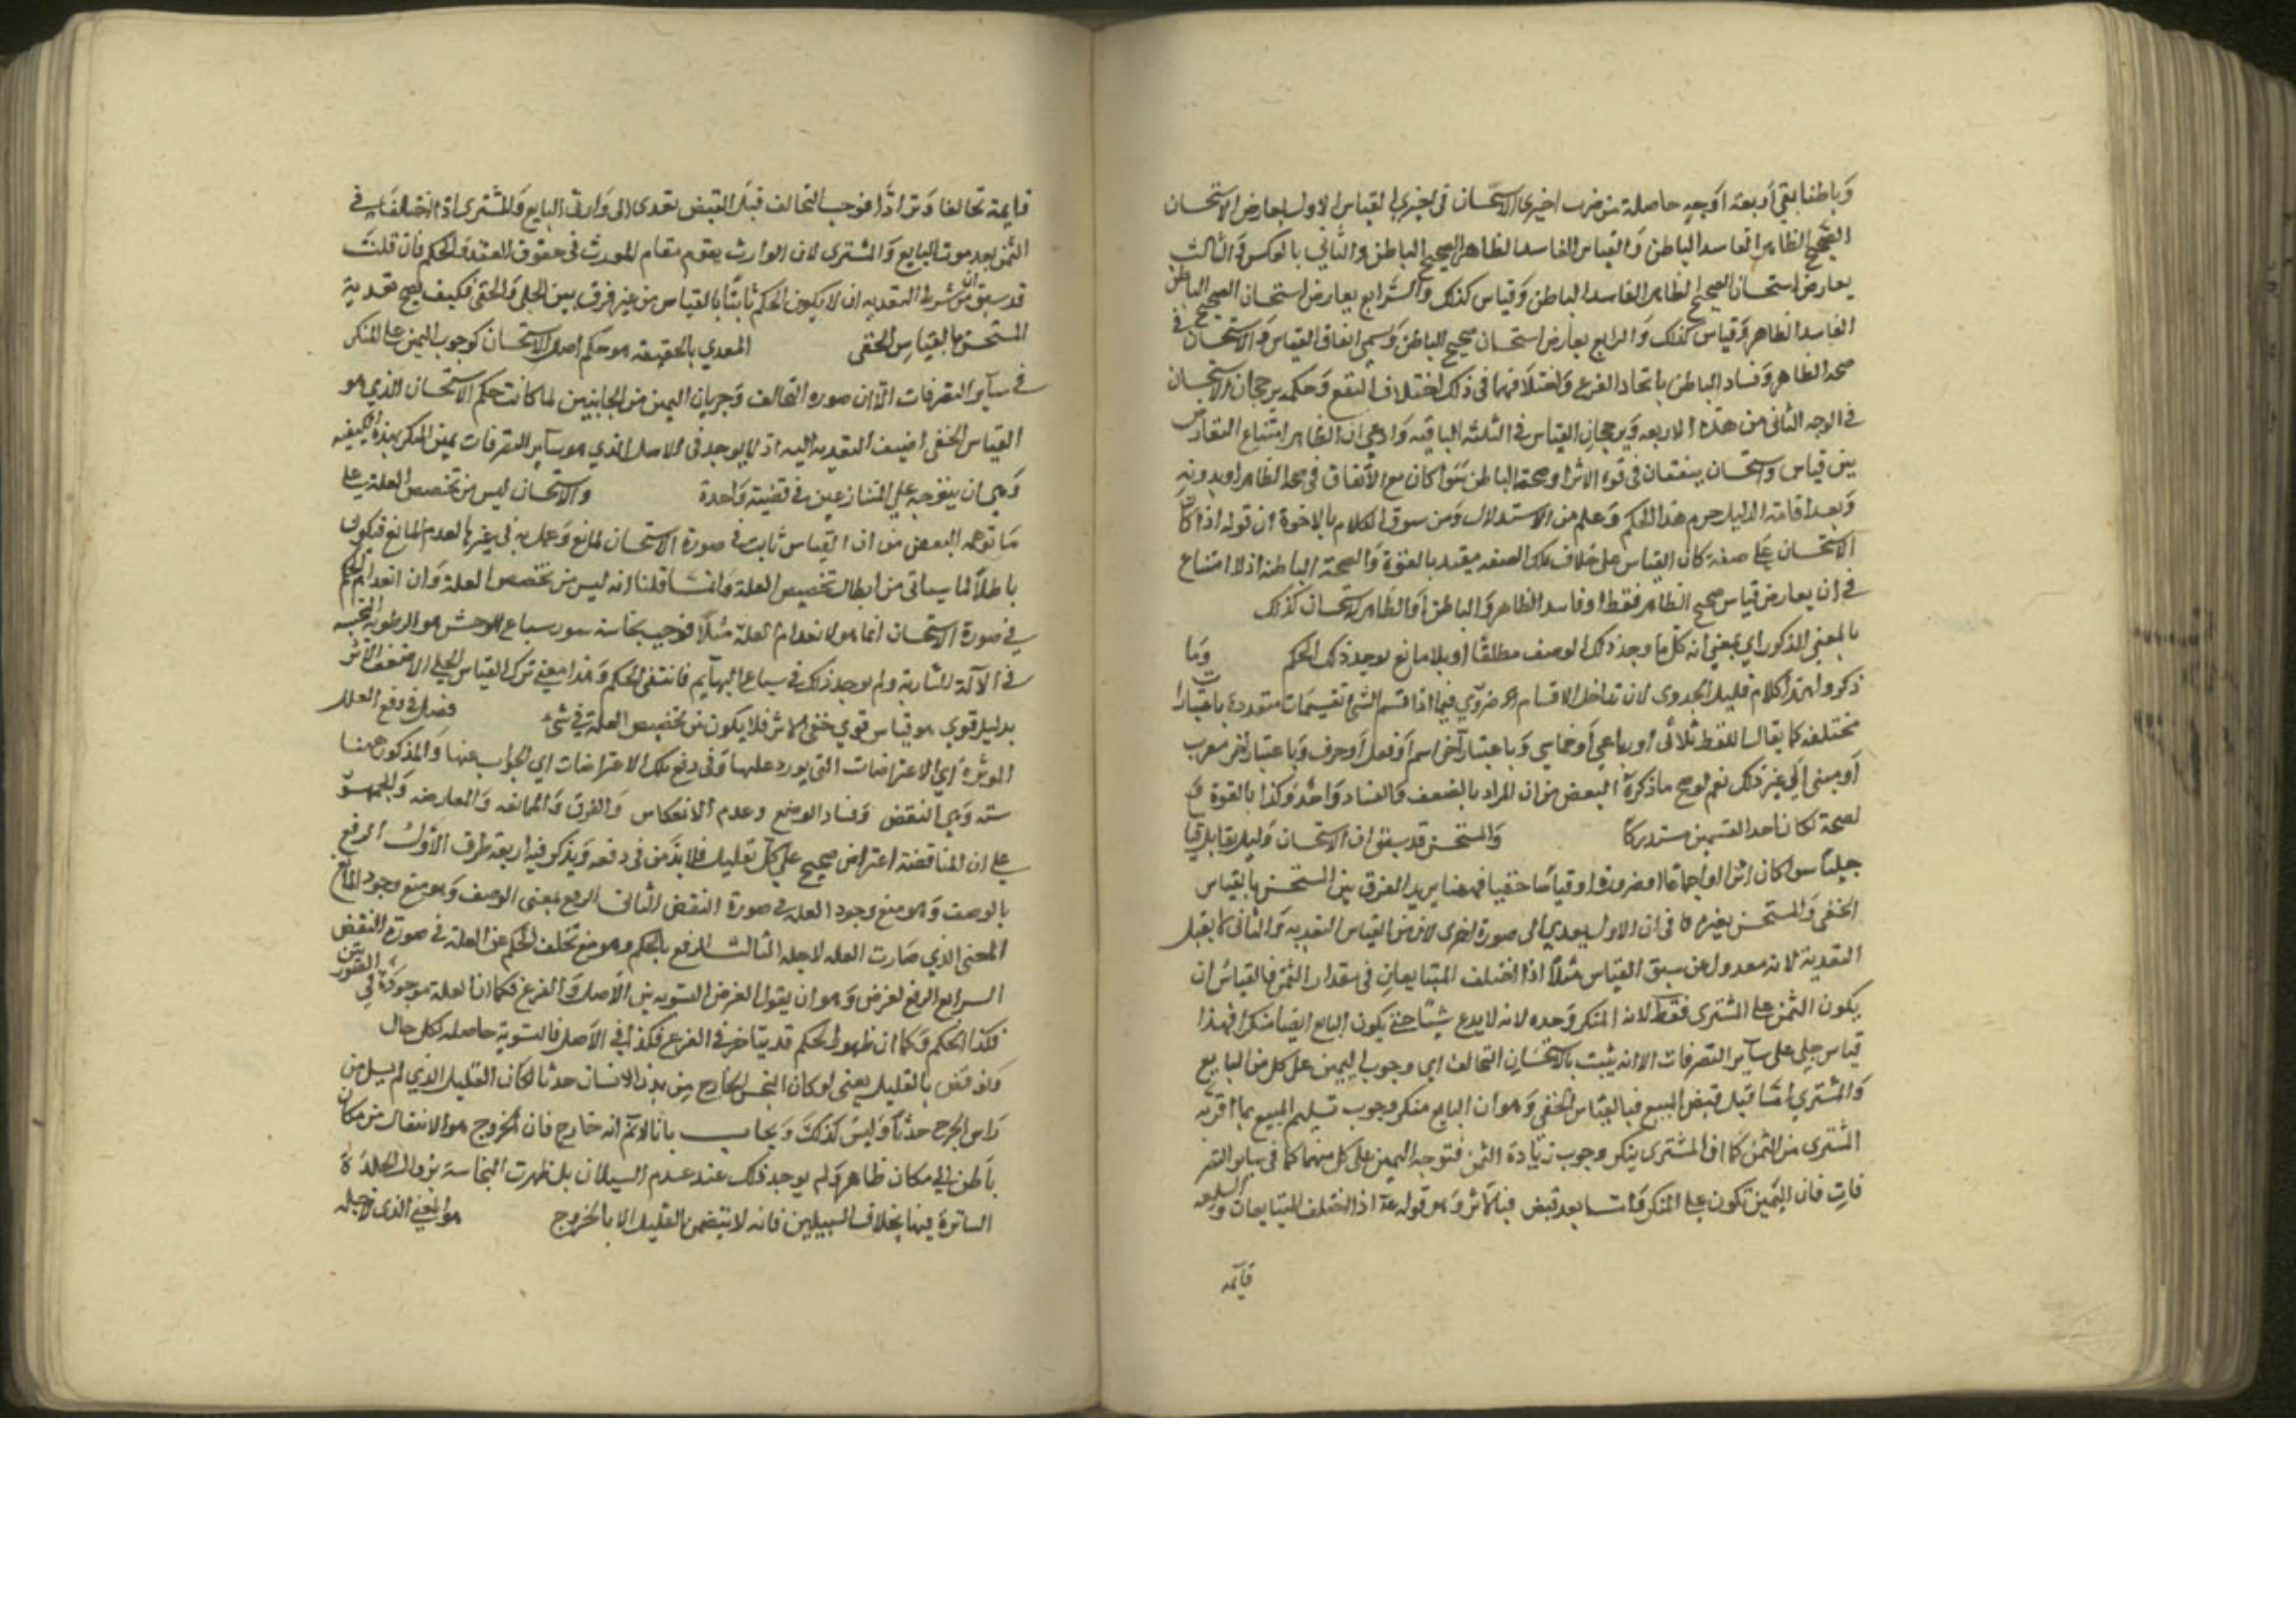 وباطنا بقي اربعة اوجه حاصلة من ضرب اخيري الاستحسان في اخيري القياس الاول يعارض الاستحسان
الصحيح الظاهر الفاسد الباطن والقياس الفاسد الظاهر الصحيح الباطن والثاني بالعكس والثالث
يعارض استحسان الصحيح الظاهر الفاسد الباطن وقياس كذلك والرابع يعارض استحسان الصحيح الباطن
الفاسد الظاهر وقياس كذلك والرابع يعارض استحسان صحيح الباطن وسمي اتفاق القياس والاستحسان في
صحة الظاهر وفساد الباطن باتحاد الفرع واختلافهما في ذلك اختلاف النوع وحكمه برجحان الاستحسان
في الوجه الثاني من هذه الاربعة وبرجحان القياس في الثلثة الباقية وادعى ان الظاهر امتناع التعارض
بين قياس واستحسان يتفقان في قوة الاثر او صحة الباطن سوا كان مع الاتفاق في صحة الظاهر او بدونه
وبعد اقامة الدليل جزم هذا الحكم وعلم من الاستدلال ومن سوق الكلام بالاخرة ان قوله اذا كان
الاستحسان على صفة كان القياس على خلاف تلك الصفة مقيد بالقوة والصحة الباطنة اذ لا امتناع
في ان يعارض قياس صحيح الظاهر فقط او فاسد الظاهر والباطن او الظاهر استحسان كذلك
بالمعنى المذكور اي بمعنى انه كل ما وجد ذلك الوصف مطلقا او بلا مانع يوجد ذلك الحكم وما
ذكروا هذا كلام قليل الجدوى لان تداخل الاقسام ضروري فيما اذا قسم الشئ تقسيمات متعددة باعتبارات
مختلفة كما يقال اللفظ ثلاثي او رباعي او خماسي وباعتبار آخر اسم او فعل او حرف وباعتبار اخر معرب
او مبني الى غير ذلك نعم لو صح ما ذكره البعض من ان المراد بالضعف والفساد واحد وكذا بالقوة و
لصحة لكان احد القسمين مستدركا والمستحسن قد سبق ان الاستحسان دليل يقابل قيا
جليا سوا كان اثرا او اجماعا او ضرورة او قياسا خفيا فههنا يريد الفرق بين المستحسن بالقياس
الخفي والمستحسن بغيره في ان الاول يعدي الى صورة اخرى لان من القياس التعدية والثاني لا يقبل
التعدية لانه معدول عن سبق القياس مثلا اذا اختلف المتبايعان في مقدار الثمن فالقياس ان
يكون الثمن على المشتري فقط لانه المنكر وحده لانه لا يدع شيئا حتى يكون البايع ايضا منكرا فهذا
قياس جلي على سائر التصرفات الا انه يثبت بالاستحسان التحالف اي وجوب اليمين على كل من البايع
والمشتري اما قبل قبض المبيع فبالقياس الخفي وهو ان البايع منكر وجوب تسليم المبيع بما اقر به
المشتري من الثمن كما ان المشتري ينكر وجوب زيادة الثمن فتوجه اليمين على كل منهما كما في سائر التصر
فات فان اليمين تكون على المنكر واما بعد قبض فبالاثر وهو قوله عم اذا اختلف المتبايعان والسلعة
قايمة
قايمة تحالفا وترادا فوجب التحالف قبل القبض تعدى الى وارثي البايع والمشتري اذا اختلفا في
الثمن بعد موت البايع والمشتري لان الوارث يقوم مقام المورث في حقوق العقد والحكم فان قلت
قد سبق ان من شرط التعدية ان لا يكون الحكم ثابتا بالقياس من غير فرق بين الجلي والخفي فكيف يصح تعدية
المستحسن بالقياس الخفي المعدي بالحقيقة هو حكم اصل الاستحسان كوجوب اليمين على المنكر
في سائر التصرفات الا ان صورة التحالف وجريان اليمين من الجانبين لما كانت حكم الاستحسان الذي هو
القياس الخفي اضيف التعدية اليه اذ لا يوجد في الاصل الذي هو سائر التصرفات يمين المنكر بهذه الكيفية
وهي ان يتوجه على المتنازعين في قضية واحدة والاستحسان ليس من تخصيص العلة على
ما توهمه البعض من ان القياس ثابت في صورة الاستحسان لمانع وعمل به في غيرها لعدم المانع فيكون
باطلا لما سياتي من ابطال تخصيص العلة وانما قلنا انه ليس من تخصيص العلة وان انعدام الحكم
في صورة الاستحسان انما هو لانعدام العلة مثلا موجب نجاسة سور سباع الوحش هو الرطوبة النجسة
في الآلة الشاربة ولم يوجد ذلك في سباع البهايم فانتفى الحكم وهذا معنى ترك القياس الجلي الضعيف الاثر
بدليل قوي هو قياس قوي خفي الاثر فلا يكون من تخصيص العلة في شئ فصل في دفع العلل
الموثرة اي الاعتراضات التي يورد عليها وفي دفع تلك الاعتراضات اي الجواب عنها والمذكور ههنا
ستة وهي النقض وفساد الوضع وعدم الانعكاس والفرق والممانعة والمعارضة والجمهور
على ان المناقضة اعتراض صحيح على كل تعليل فلا بد من في دفعه ويذكر فيه اربعة طرق الاول الدفع
بالوصف وهو منع وجود العلة في صورة النقض الثاني الدفع بمعنى الوصف وهو منع وجود المانع
المعنى الذي صارت العلة لاجله الثالث الدفع بالحكم وهو منع تخلف الحكم عن العلة في صورة النقض
الرابع الدفع لغرض وهو ان يقول الغرض التسوية بين الاصل والفرع فكما ان العلة موجودة في الصورتين
فكذا الحكم وكما ان ظهور الحكم قد يتاخر في الفرع فكذا في الاصل فالتسوية حاصلة بكل حال
ونوقض بالقليل يعني لو كان النجس الخارج من بدن الانسان حدثا لكان القليل الذي لم يسل من
راس الجرح حدثا وليس كذلك ويجاب بانا لا نم انه خارج فان الخروج هو الانتقال من مكان
باطن الى مكان ظاهر ولم يوجد ذلك عند عدم السيلان بل ظهرت النجاسة بزوال الجلدة
الساترة فيها بخلاف السبيلين فانه لا يتضمن القليل الا بالخروج هو المعنى الذي لاجله